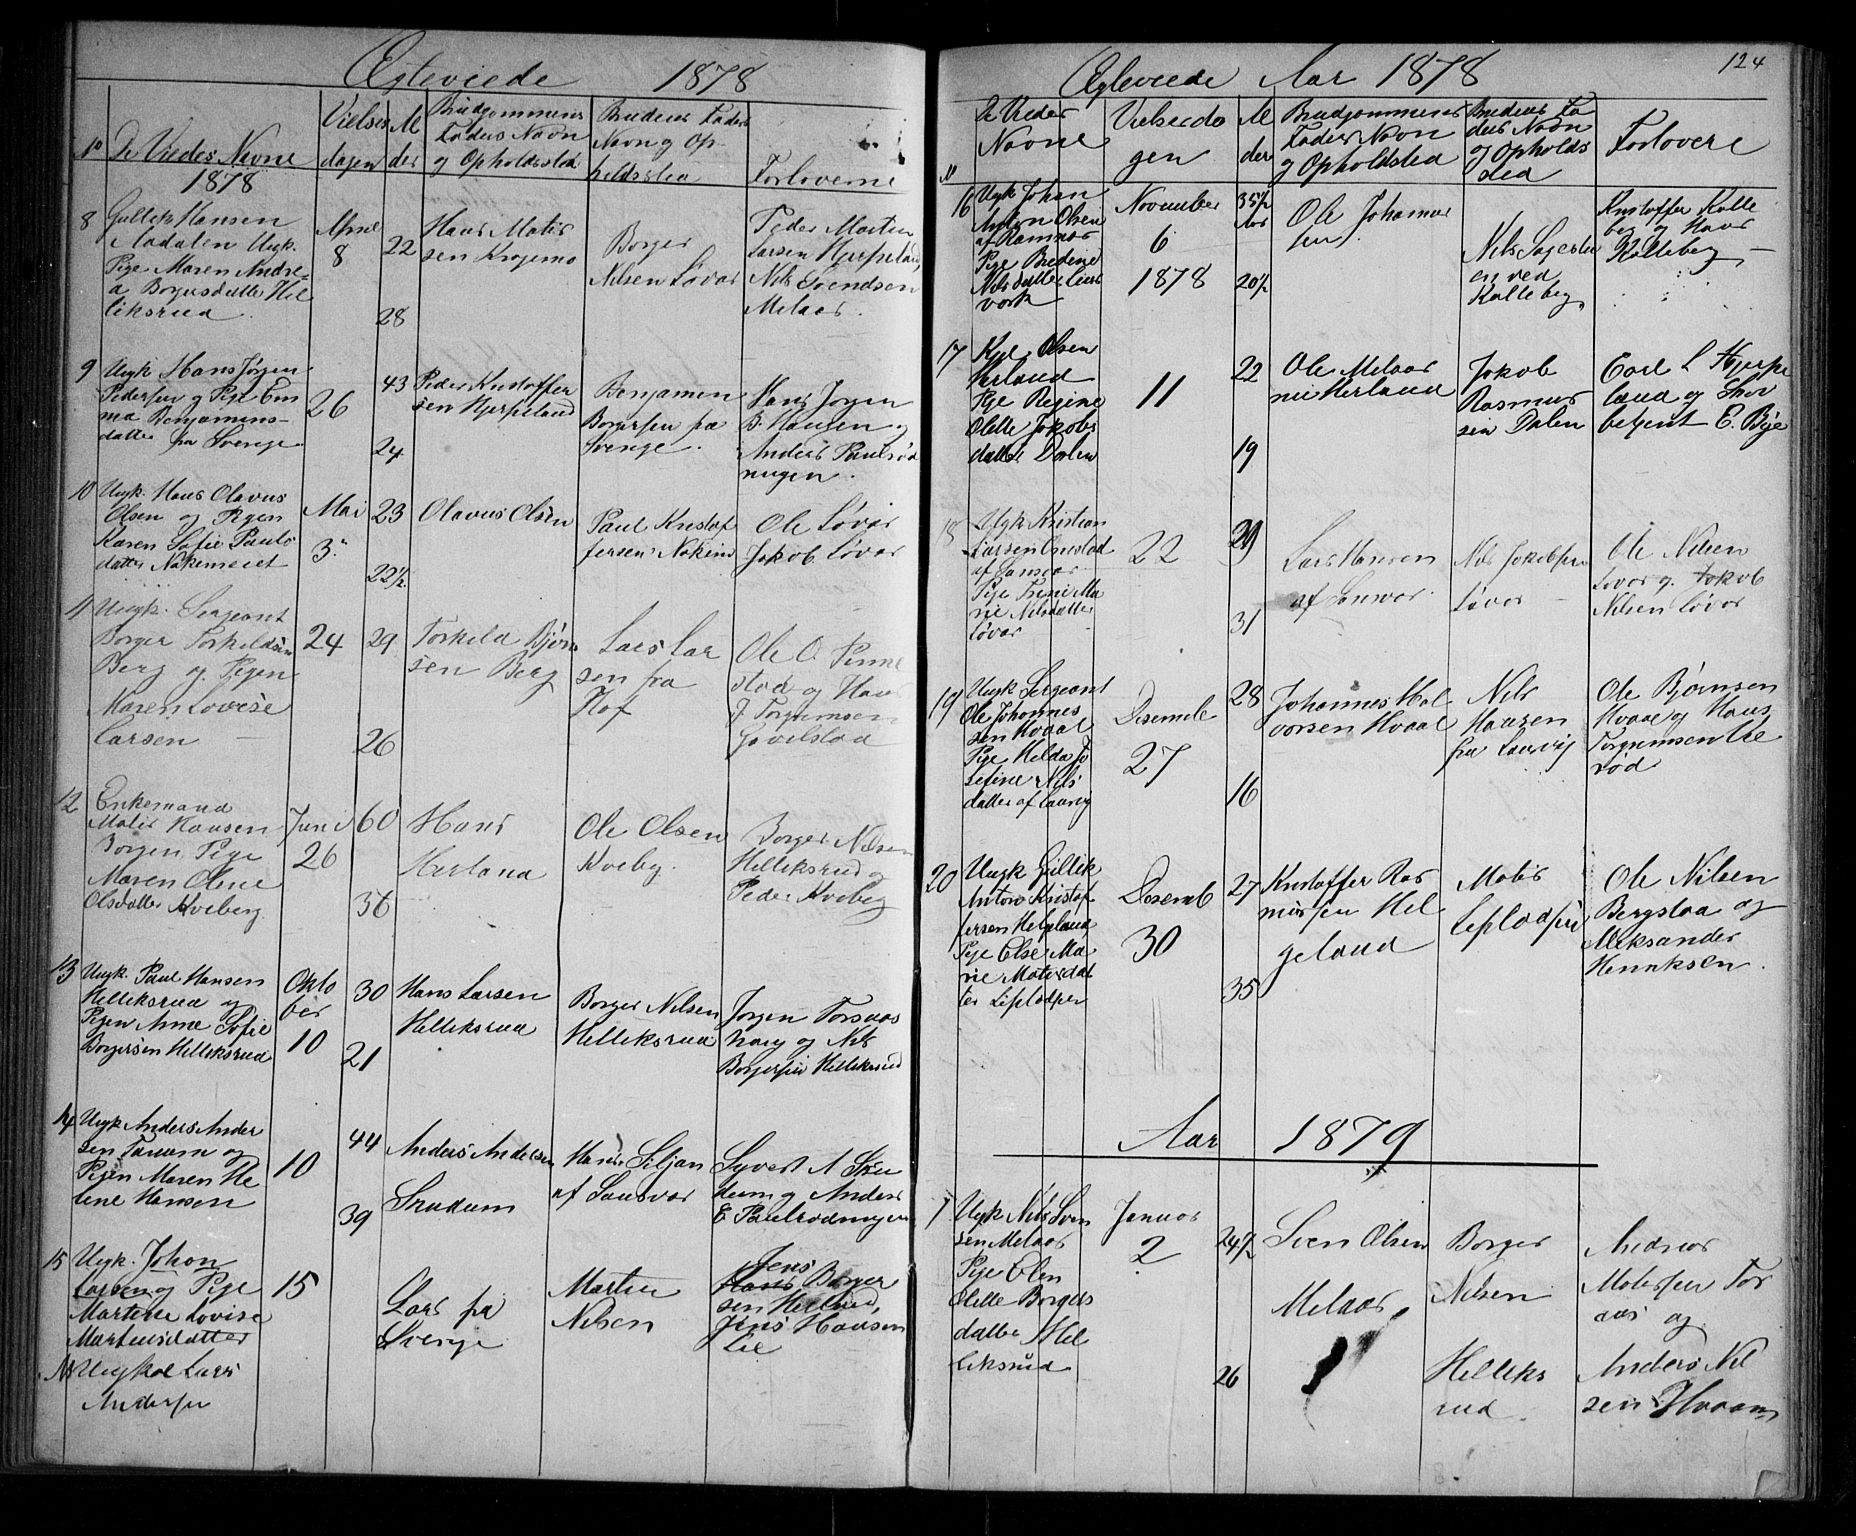 Egteviede 1878
No
De Viedes Navne
1878
Vielses
dagen
Al
der
Brudgommens
Faders Navn
og Opholdssted
Brudens Faders
Navn og Op-
holdssted
Forloverne
8
Gullik Hansen
Aadalen Ungk.
Pige Maren Andre-
a Borgersdatter Hel
liksrud
April
8
22
28
Hans Matis
sen
Borger
Nilsen Løvar
Peder Martin
Larsen Hjerpeland,
Nils Svendsen
Melaas.
9
Ungk Hans Jørgen
Pedersen og Pige Em
ma Benjamins-
datter fra Sverige
26
43
24
Peder Kristoffer
sen Hjerpeland
Benjamen
Borgersen fra
Sverige.
Hans Jørgen
B. Hansen og
Anders Paulsrød
nugen.
10
Ungk. Hans Olavus
Olsen og Pigen
Karen Sofie Pauls
datter
Mai
3.
23
22½
Olavus Olsen
Paul Kristof
fersen
Ole Løvar
Jakob Løvar
11
Ungk. Sergeant
Borger Torkildsen
Berg og Pigen
Maren Lovise
Larsen
24
29
26
Torkild Bjørn
sen Berg
Lars Lar
sen fra
Hof
Ole O.
stad og Hans
J. Torgrimsen
12
Enkemand
Matis Hansen
Borgen Pige
Maren Oline
Olsdatter Kveberg
Juni
26
60
36
Hans
Herland
Ole Olsen
Kveberg.
Borger Nilsen
Helliksrud og
Peder Kveberg
13
Ungk. Paul Hansen
Helliksrud og
Pigen Anne Sofie
Borgersen Helliksrud
Okto
ber
10
30
21
Hans Larsen
Helliksrud
Borger Nilsen
Helliksrud
Jørgen Torsaas
haug og Nils
Borgersen Helliksrud
14
Ungk Anders Ander
sen og
Pigen Maren He
lene Hansen
10
44
39
Anders Andersen
Skudum
Hans Siljan
af Sandsvær
Syvert A
og Anders
E Paulsrødnugen
15
Ungk. Johan
Larsen og Pige
Martine Lovise
Martinsdatter
15
Lars fra
Sverige
Martin
Nilsen
Jens
Hans Borger
sen Herland,
Jens Hansen
Lie
Ungkal Lars
Andersen
Egteviede Aar 1878
124
N
De Viedes
Navne
Vielsesda
gen
Al
der
Brudgommens
Faders Navn
og Opholdssted
Brudens Fa
ders Navn
og Opholds
sted
Forlovere
16
Ungk Johan
Anton Olsen
af Ramnæs
Pige Bredine
Nilsdatter Laur
vork
November
6
1878
35½
Aar
20½
Ole Johannes
sen.
Nils
en ved
Kalleberg
Kristoffer Kalle
berg og Hans
Kalleberg
17
Karl Olsen
Herland
Pige Regine
Olette Jakobs
datter Dalen
11
22
19
Ole Melaas
nu Herland
Jakob
Rasmus
sen Dalen
Carl L Hjerpe
land og Skol
betjent E. Bye
18
Ungk Kristian
Larsen
af Sansvær
Pige Trine Ma
rie Nilsdatter
Løvar
22
29
31
Lars Hansen
af Sansvær.
Nils Jakobsen
Løvar
Ole Nilsen
Løvar og Jakob
Nilsen Løvar
19
Ungk Sergeant
Ole Johannes
sen Hvaal
Pige Helda Jo
sefine Nils
datter af Laurvig
Desembe
27
28
16
Johannes Hal
vorsen Hvaal
Nils
Hansen
fra Laurvig
Ole Bjørnsen
Hvaal og Hans
Torgrimsen Ube
rød
20
Ungk Gullik
Anton Kristof
fersen Helgeland
Pige Else Ma
rie Matisdat
ter Liplødpen
Desemb
30
27
35
Kristoffer Ras
mussen Hel
geland
Matis
Liplødpen
Ole Nilsen
Bergstad og
Aleksander
Henriksen.
Aar 1879
1
Ungk Nils Sven
sen Melaas
Pige Elen
Olette Borgers
datter Hel
liksrud
Januar
2
24½
26
Sven Olsen
Melaas.
Borger
Nilsen
Helliks
rud.
Andreas
Matissen Tor
aas og
Anders Nil
sen Hvaam